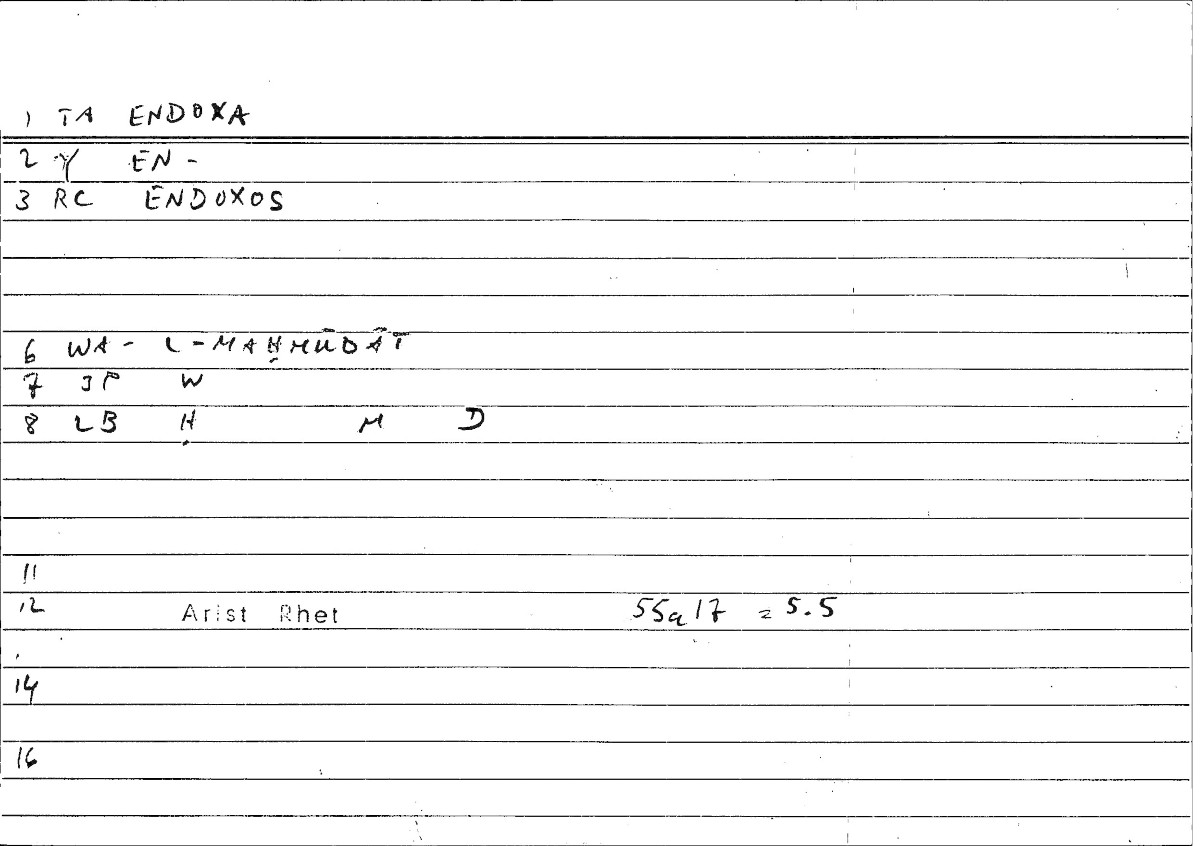 1 TA ENDOXA
2 Y EN -
3 RC ENDOXOS
6 WA- L-MAḤMŪDĀT
7 JP W
8 LB Ḥ M D
11
12 Arist Rhet 55a17 = 5.5
14
16